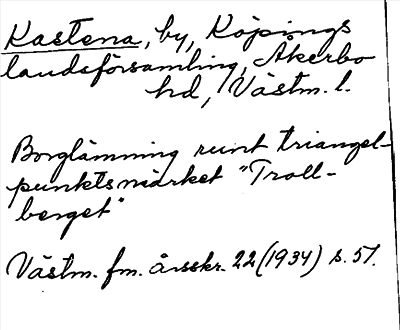 Kastena, by, Köpings
landsförsamling, Åkerbo
hd, Västm. l.
Borglämning runt triangel-
punktsmärket "Troll-
berget"
Västm. fm. årsskr. 22 (1934) s. 57.